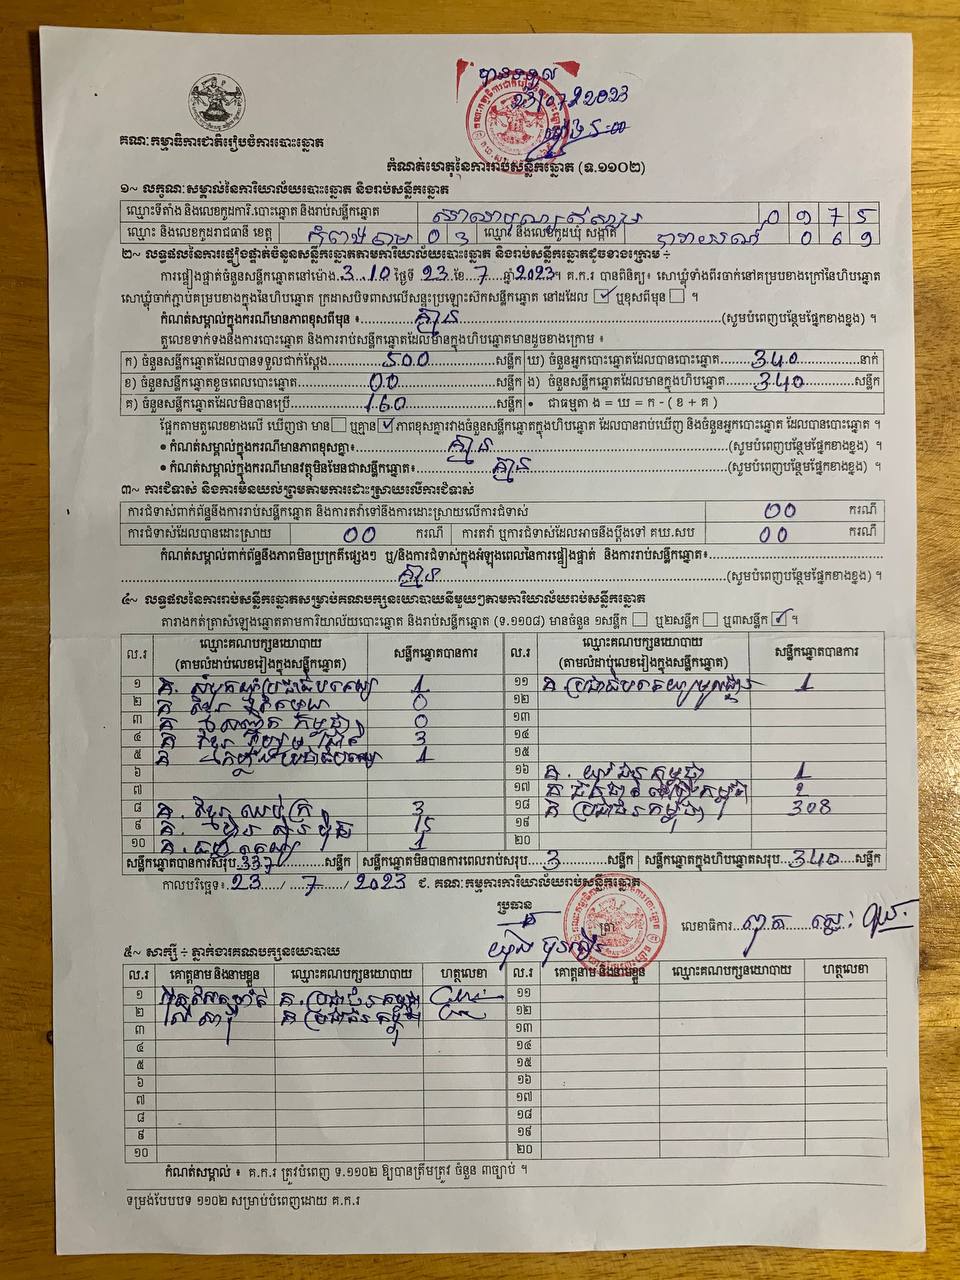 បានទទួល
23/07/2023
គណៈកម្មាធិការជាតិរៀបចំការបោះឆ្នោត
កំណត់ហេតុនៃការរាប់សន្លឹកឆ្នោត (ទ.១១០២)
១~ លក្ខណៈសម្គាល់នៃការិយាល័យបោះឆ្នោត និងរាប់សន្លឹកឆ្នោត
ឈ្មោះទីតាំង និងលេខកូដការិ.បោះឆ្នោត និងរាប់សន្លឹកឆ្នោត 0 1 7 5
ឈ្មោះ និងលេខកូដរាជធានី ខេត្ត កំពង់ចាម 0 3 ឈ្មោះ និងលេខកូដឃុំ សង្កាត់ 0 6 9
២~ លទ្ធផលនៃការផ្ទៀងផ្ទាត់ចំនួនសន្លឹកឆ្នោតតាមការិយាល័យបោះឆ្នោត និងរាប់សន្លឹកឆ្នោតដូចខាងក្រោម ÷
ការផ្ទៀងផ្ទាត់ចំនួនសន្លឹកឆ្នោតនៅម៉ោង 3:10 ថ្ងៃទី 23 ខែ 7 ឆ្នាំ 2023។ គ.ក.រ បានពិនិត្យ៖ សោឃ្លុំទាំងពីរចាក់នៅគម្របខាងក្រៅនៃហិបឆ្នោត
សោឃ្លុំចាក់ភ្ជាប់គម្របខាងក្នុងនៃហិបឆ្នោត ក្រដាសបិទពាសលើសន្ទះប្រឡោះសិកសន្លឹកឆ្នោត នៅដដែល ✓ ឬខុសពីមុន ។
កំណត់សម្គាល់ក្នុងករណីមានភាពខុសពីមុន ៖ គ្មាន (សូមបំពេញបន្ថែមផ្នែកខាងខ្នង) ។
តួលេខទាក់ទងនឹងការបោះឆ្នោត និងការរាប់សន្លឹកឆ្នោតដែលមានក្នុងហិបឆ្នោតមានដូចខាងក្រោម ៖
ក) ចំនួនសន្លឹកឆ្នោតដែលបានទទួលជាក់ស្តែង 500 សន្លឹក ឃ) ចំនួនអ្នកបោះឆ្នោតដែលបានបោះឆ្នោត 340 នាក់
ខ) ចំនួនសន្លឹកឆ្នោតខូចពេលបោះឆ្នោត 00 សន្លឹក ង) ចំនួនសន្លឹកឆ្នោតដែលមានក្នុងហិបឆ្នោត 340 សន្លឹក
គ) ចំនួនសន្លឹកឆ្នោតដែលមិនបានប្រើ 160 សន្លឹក • ជាធម្មតា ង = ឃ = ក - ( ខ + គ )
ផ្អែកតាមតួលេខខាងលើ ឃើញថា មាន ឬគ្មាន ✓ ភាពខុសគ្នារវាងចំនួនសន្លឹកឆ្នោតក្នុងហិបឆ្នោត ដែលបានរាប់ឃើញ និងចំនួនអ្នកបោះឆ្នោត ដែលបានបោះឆ្នោត ។
• កំណត់សម្គាល់ក្នុងករណីមានភាពខុសគ្នា៖ គ្មាន (សូមបំពេញបន្ថែមផ្នែកខាងខ្នង) ។
• កំណត់សម្គាល់ក្នុងករណីមានវត្ថុមិនមែនជាសន្លឹកឆ្នោត៖ គ្មាន (សូមបំពេញបន្ថែមផ្នែកខាងខ្នង) ។
៣~ ការជំទាស់ និងការមិនយល់ព្រមតាមការដោះស្រាយលើការជំទាស់
ការជំទាស់ពាក់ព័ន្ធនឹងការរាប់សន្លឹកឆ្នោត និងការតវ៉ាទៅនឹងការដោះស្រាយលើការជំទាស់ 00 ករណី
ការជំទាស់ដែលបានដោះស្រាយ 00 ករណី ការតវ៉ា ឬការជំទាស់ដែលអាចនឹងប្តឹងទៅ គឃ.សប 00 ករណី
កំណត់សម្គាល់ពាក់ព័ន្ធនឹងភាពមិនប្រក្រតីផ្សេងៗ ឬ/និងការជំទាស់ក្នុងអំឡុងពេលនៃការផ្ទៀងផ្ទាត់ និងការរាប់សន្លឹកឆ្នោត៖
គ្មាន (សូមបំពេញបន្ថែមផ្នែកខាងខ្នង) ។
៤~ លទ្ធផលនៃការរាប់សន្លឹកឆ្នោតសម្រាប់គណបក្សនយោបាយនីមួយៗតាមការិយាល័យរាប់សន្លឹកឆ្នោត
តារាងកត់ត្រាសំឡេងឆ្នោតតាមការិយាល័យបោះឆ្នោត និងរាប់សន្លឹកឆ្នោត (ទ.១១០៨) មានចំនួន ១សន្លឹក ឬ២សន្លឹក ឬ៣សន្លឹក ✓ ។
ល.រ ឈ្មោះគណបក្សនយោបាយ (តាមលំដាប់លេខរៀងក្នុងសន្លឹកឆ្នោត) សន្លឹកឆ្នោតបានការ ល.រ ឈ្មោះគណបក្សនយោបាយ (តាមលំដាប់លេខរៀងក្នុងសន្លឹកឆ្នោត) សន្លឹកឆ្នោតបានការ
១ គ. សំបុកឃ្មុំប្រជាធិបតេយ្យ 1 ១១ គ. ប្រជាធិបតេយ្យមូលដ្ឋាន 1
២ គ 0 ១២
៣ គ 0 ១៣
៤ គ 3 ១៤
៥ គ 1 ១៥
៦ ១៦ គ. យុវជនកម្ពុជា 1
៧ ១៧ គ
៨ គ. ខ្មែរឈប់ក្រ 3 ១៨ គ ប្រជាជនកម្ពុជា 308
៩ គ. ហ្វ៊ុនស៊ិនប៉ិច 15 ១៩
១០ គ. 1 ២០
សន្លឹកឆ្នោតបានការសរុប 337 សន្លឹក សន្លឹកឆ្នោតមិនបានការពេលរាប់សរុប 3 សន្លឹក សន្លឹកឆ្នោតក្នុងហិបឆ្នោតសរុប 340 សន្លឹក
កាលបរិច្ឆេទ៖ 23 / 7 / 2023 ជ. គណៈកម្មការការិយាល័យរាប់សន្លឹកឆ្នោត
ប្រធាន
ត្រា
លេខាធិការ
៥~ សាក្សី ÷ ភ្នាក់ងារគណបក្សនយោបាយ
ល.រ គោត្តនាម និងនាមខ្លួន ឈ្មោះគណបក្សនយោបាយ ហត្ថលេខា ល.រ គោត្តនាម និងនាមខ្លួន ឈ្មោះគណបក្សនយោបាយ ហត្ថលេខា
១ គ. ប្រជាជនកម្ពុជា ១១
២ គ ប្រជាជនកម្ពុជា ១២
៣ ១៣
៤ ១៤
៥ ១៥
៦ ១៦
៧ ១៧
៨ ១៨
៩ ១៩
១០ ២០
កំណត់សម្គាល់ ៖ គ.ក.រ ត្រូវបំពេញ ទ.១១០២ ឱ្យបានត្រឹមត្រូវ ចំនួន ៣ច្បាប់ ។
ទម្រង់បែបបទ ១១០២ សម្រាប់បំពេញដោយ គ.ក.រ